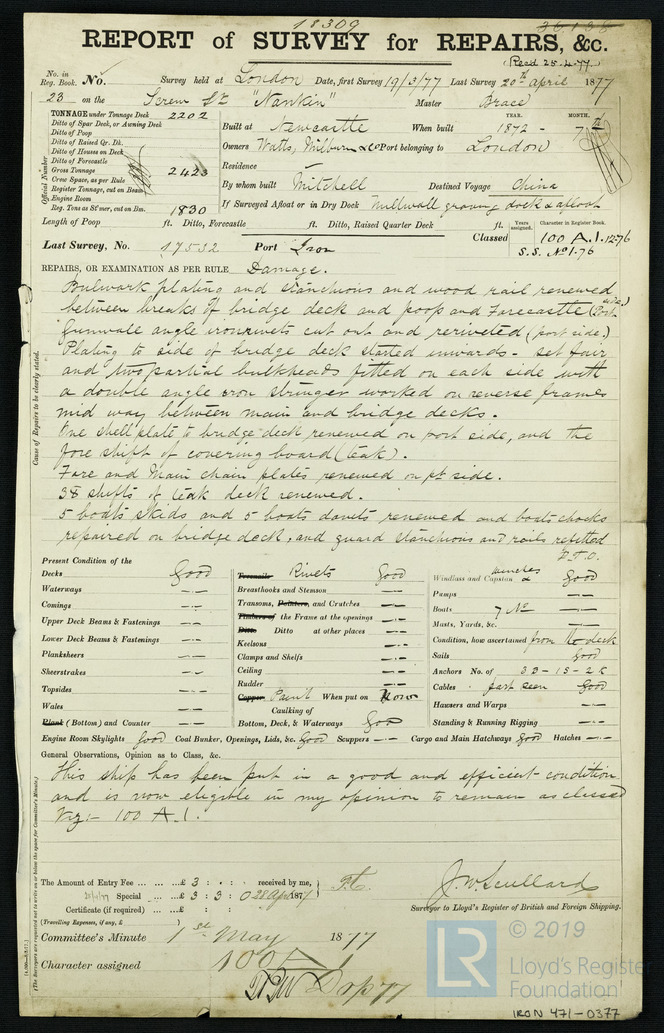 18309
36138
REPORT of SURVEY for REPAIRS, &c.
(Recd 25.4.77)
No. in Reg. Book. No. Survey held at London Date, first Survey 19/3/77 Last Survey 20th April 1877
23 on the Screw Str "Nankin" Master Brace
TONNAGE under Tonnage Deck 2202
Ditto of Spar Deck, or Awning Deck
Ditto of Poop
Ditto of Raised Qr. Dk.
Ditto of Houses on Deck
Ditto of Forecastle
Gross Tonnage 2423
Crew Space, as per Rule
Register Tonnage, cut on Beam
Engine Room
Reg. Tons as St'mer, cut on Bm. 1830
Official Number
YEAR. MONTH.
Built at Newcastle When built 1872 - 7
Owners Watts, Milburn & Co Port belonging to London
Residence
By whom built Mitchell Destined Voyage China
If Surveyed Afloat or in Dry Dock Millwall graving dock & afloat
Length of Poop ft. Ditto, Forecastle ft. Ditto, Raised Quarter Deck ft.
Years assigned. Character in Register Book.
Last Survey, No. 17532 Port Iron Classed 100 A.1. 12-76
S.S. No 1-76
REPAIRS, OR EXAMINATION AS PER RULE Damage.
Bulwark plating and stanchions and wood rail renewed
between breaks of bridge deck and poop and Forecastle (Port side.)
Gunwale angle iron rivets cut out and reriveted (port side.)
Plating to side of bridge deck started inwards - set fair
and two partial bulkheads fitted on each side with
a double angle iron stringer worked on reverse frames
mid way between main and bridge decks.
One shell plate to bridge deck renewed on port side, and the
fore shift of covering board (teak).
Fore and Main chain plates renewed on pt side.
38 shifts of teak deck renewed.
5 boats skids and 5 boats davits renewed and boats chocks
repaired on bridge deck, and guard stanchions and rails refitted
P.T.O.
Cause of Repairs to be clearly stated.
Present Condition of the
Decks Good
Waterways —
Comings —
Upper Deck Beams & Fastenings —
Lower Deck Beams & Fastenings —
Planksheers —
Sheerstrakes —
Topsides —
Wales —
Plank (Bottom) and Counter —
Treenails Rivets Good
Breasthooks and Stemson —
Transoms, Pointers, and Crutches —
Timbers of the Frame at the openings —
Ditto Ditto at other places —
Keelsons —
Clamps and Shelfs —
Ceiling —
Rudder —
Copper Paint When put on Now
Caulking of
Bottom, Deck, & Waterways Good
Windlass and Capstan & winches Good
Pumps —
Boats 7 No —
Masts, Yards, &c. —
Condition, how ascertained from the deck
Sails Good
Anchors No. of 3B - 1S - 2K
Cables part seen Good
Hawsers and Warps —
Standing & Running Rigging —
Engine Room Skylights Good Coal Bunker, Openings, Lids, &c. Good Scuppers — Cargo and Main Hatchways Good Hatches —
General Observations, Opinion as to Class, &c.
This ship has been put in a good and efficient condition
and is now eligible in my opinion to remain as classed
Viz:- 100 A.1.
The Amount of Entry Fee £ 3 : : received by me,
Special £ 3 : 3 : 0 28 Apr 1877
Certificate (if required) £ : :
(Travelling Expenses, if any, £ )
J. W. Scullard
Surveyor to Lloyd's Register of British and Foreign Shipping.
Committee's Minute 1st May 1877
Character assigned 100 A 1
(The Surveyors are requested not to write on or below the space for Committee's Minute.)
LR
© 2019
Lloyd's Register
Foundation
IRON 471-0377